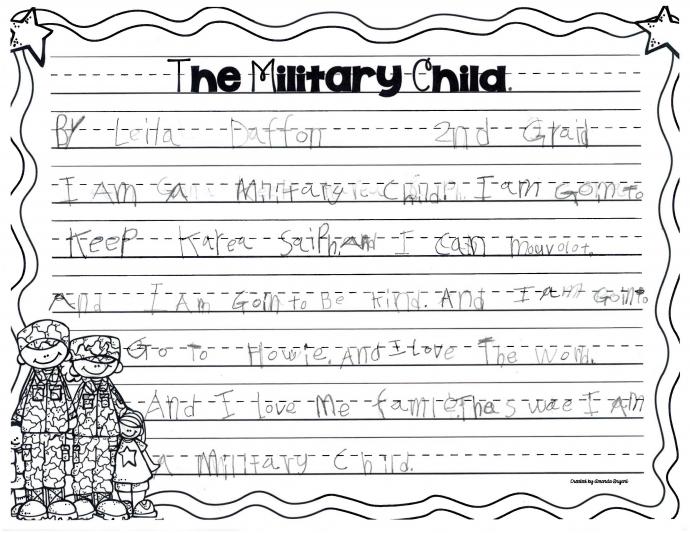 The Military Child.
By Leila Daffon 2nd Graid
I Am a Military Child. I am Gointo
Keep Karea Saiph. And I can mouvolot.
And I Am Gointo Be kind. And I AM Gointo
Go To Howie. And I Love The World.
And I love Me famle. Thas wae I Am
a Military Child.
Created by Amanda Bryant